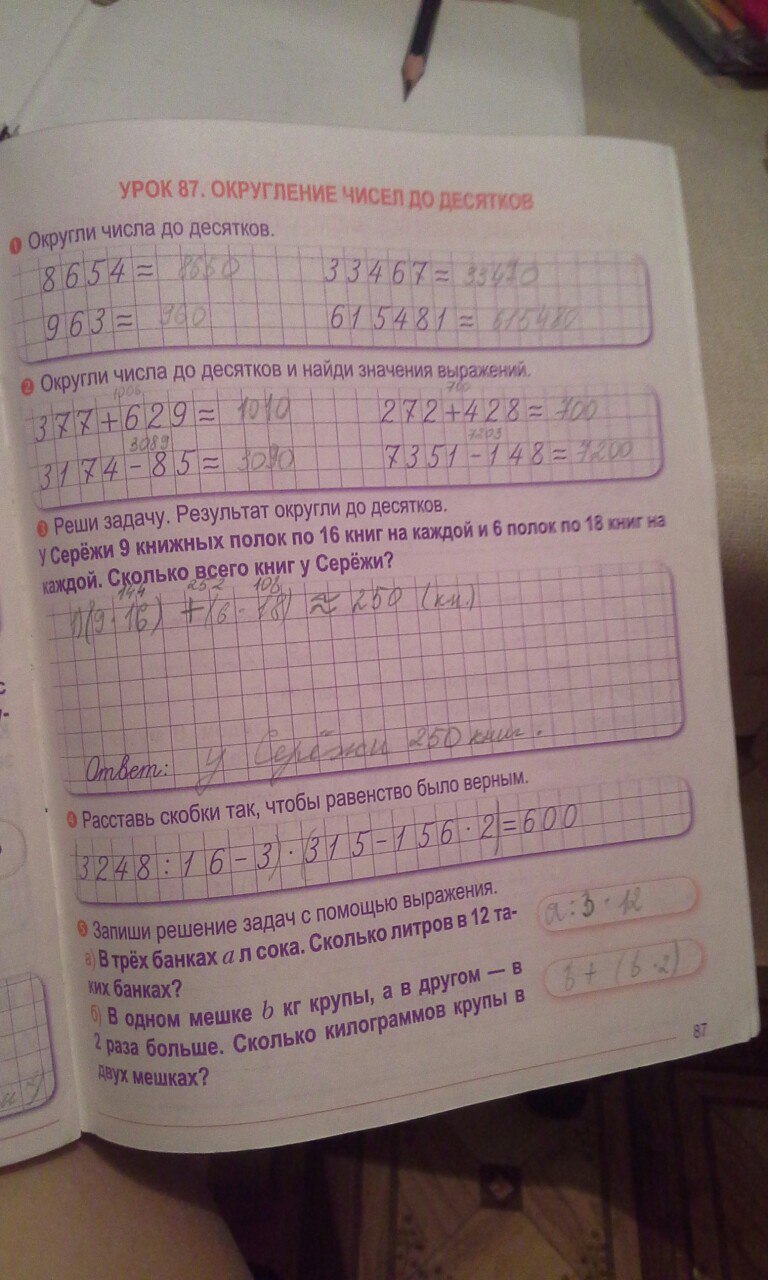 УРОК 87. ОКРУГЛЕНИЕ ЧИСЕЛ ДО ДЕСЯТКОВ
1 Округли числа до десятков.
8654= 8650 33467= 33470
963= 960 615481= 615480
2 Округли числа до десятков и найди значения выражений.
1006 700
377+629= 1010 272+428= 700
3089 7203
3174-85= 3090 7351-148= 7200
3 Реши задачу. Результат округли до десятков.
У Серёжи 9 книжных полок по 16 книг на каждой и 6 полок по 18 книг на
каждой. Сколько всего книг у Серёжи?
144 252 108
1)(9·16) +(6·18) ≈ 250 (кн.)
Ответ: у Серёжи 250 книг.
4 Расставь скобки так, чтобы равенство было верным.
3248:16-3)·(315-156·2)=600
5 Запиши решение задач с помощью выражения.
а) В трёх банках a л сока. Сколько литров в 12 та-
ких банках?
a:3·12
б) В одном мешке b кг крупы, а в другом — в
2 раза больше. Сколько килограммов крупы в
двух мешках?
b+(b·2)
87